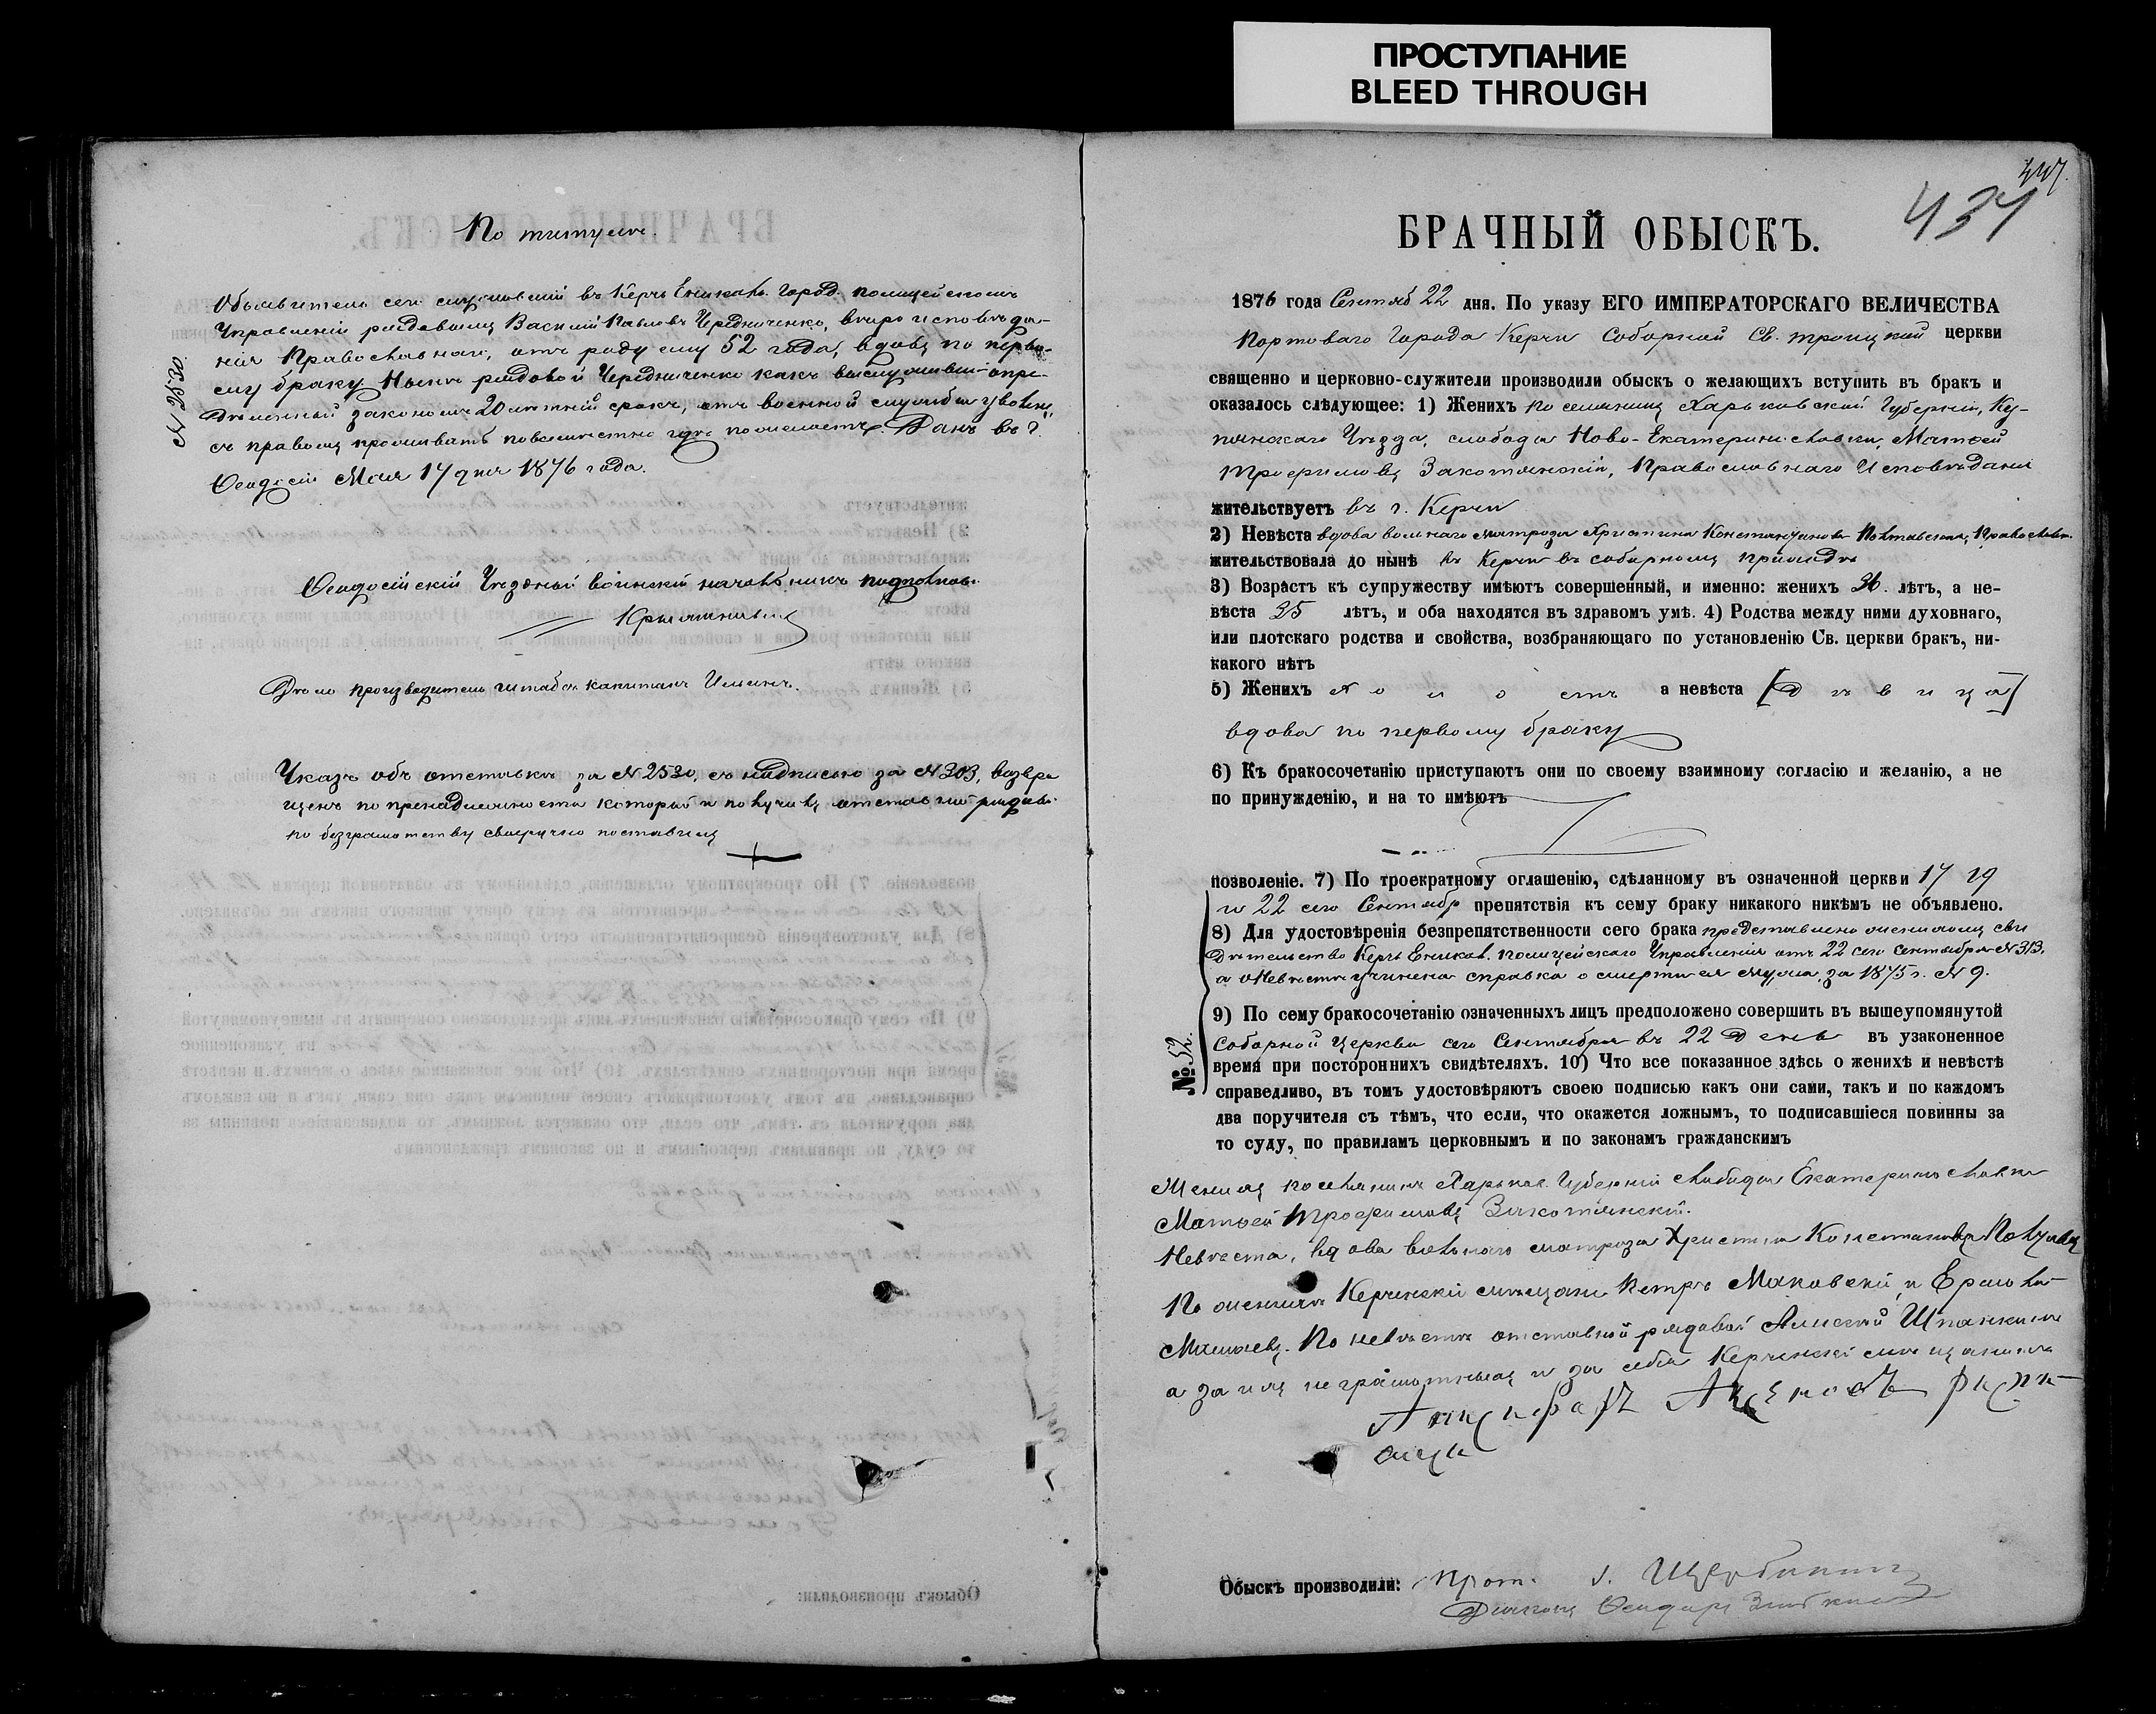 ПРОСТУПАНИЕ
BLEED THROUGH
По титулѣ.
№ 2530.
Объявитель сего служившій въ Керчь Еникал. Город. полицейскомъ
Управленіи рядовымъ Василій Павловъ Чередниченко, вѣроисповѣда-
нія Православнаго, отъ роду ему 52 года, вдовъ по перво-
му браку. Нынѣ рядовой Чередниченко какъ выслужившій опре-
дѣленный закономъ 20 лѣтній срокъ, отъ военной службы уволенъ,
съ правомъ проживать повсемѣстно гдѣ пожелаетъ. Данъ въ г.
Ѳеодосіи Мая 17 дня 1876 года.
Ѳеодосійскій Уѣздный воинскій начальникъ подполков.
Дѣлопроизводитель штабсъ капитанъ Ильинъ.
Указъ объ отставкѣ за № 2530, съ надписью за № 303, возвра
щенъ по принадлежности который и получилъ отставной рядов.
по безграмотству своеручно поставилъ
+
447.
434
БРАЧНЫЙ ОБЫСКЪ.
1876 года Сентяб 22 дня. По указу ЕГО ИМПЕРАТОРСКАГО ВЕЛИЧЕСТВА
Портоваго Города Керчи Соборной Св. Троицкой церкви
священно и церковно-служители производили обыскъ о желающихъ вступить въ бракъ и
оказалось слѣдующее: 1) Женихъ поселянинъ Харьковской Губерніи, Ку-
пянскаго Уѣзда, слободы Ново-Екатеринославки, Матѳей
Трофимовъ Закотянскій, Православнаго Исповѣданія
жительствуетъ въ г. Керчи
2) Невѣста вдова вольнаго матроза Христина Константинова Полтавская, Православн.
жительствовала до нынѣ въ Керчи въ соборномъ приходѣ
3) Возрастъ къ супружеству имѣютъ совершенный, и именно: женихъ 36. лѣтъ, а не-
вѣста 35 лѣтъ, и оба находятся въ здравомъ умѣ. 4) Родства между ними духовнаго,
или плотскаго родства и свойства, возбраняющаго по установленію Св. церкви бракъ, ни-
какого нѣтъ
5) Женихъ холостъ а невѣста [дѣвица]
вдова по первому браку
6) Къ бракосочетанію приступаютъ они по своему взаимному согласію и желанію, а не
по принужденію, и на то имѣютъ
позволеніе. 7) По троекратному оглашенію, сдѣланному въ означенной церкви 17 19
и 22 сего Сентябр препятствія къ сему браку никакого никѣмъ не объявлено.
8) Для удостовѣренія безпрепятственности сего брака представлено женихомъ сви
дѣтельство Керчь Еников. полицейскаго Управленія отъ 22 сего Сентября № 313.
а о Невѣстѣ учинена справка о смерти ея мужа, за 1875 г. № 9.
9) По сему бракосочетанію означенныхъ лицъ предположено совершить въ вышеупомянутой
Соборной Церкви сего Сентября въ 22 День въ узаконенное
№. 52.
время при постороннихъ свидѣтеляхъ. 10) Что все показанное здѣсь о женихѣ и невѣстѣ
справедливо, въ томъ удостовѣряютъ своею подписью какъ они сами, такъ и по каждомъ
два поручителя съ тѣмъ, что если, что окажется ложнымъ, то подписавшіеся повинны за
то суду, по правиламъ церковнымъ и по законамъ гражданскимъ
Женихъ поселянинъ Харьков. Губерніи слободы Екатеринославки
Матѳей Трофимовъ Закотянскій.
Невѣста, вдова вольнаго матроза Христина Константинова
По женихѣ Керченскіе мѣщане Петръ Маковскій, и Ермолай
Мамаевъ. По невѣстѣ отставной рядовой Алексѣй Шпанкинъ
а за ихъ неграмотныхъ и за себя Керченскій мѣщанинъ
Обыскъ производили: Прот. І. Щербинин
Дьяконъ Ѳеодоръ